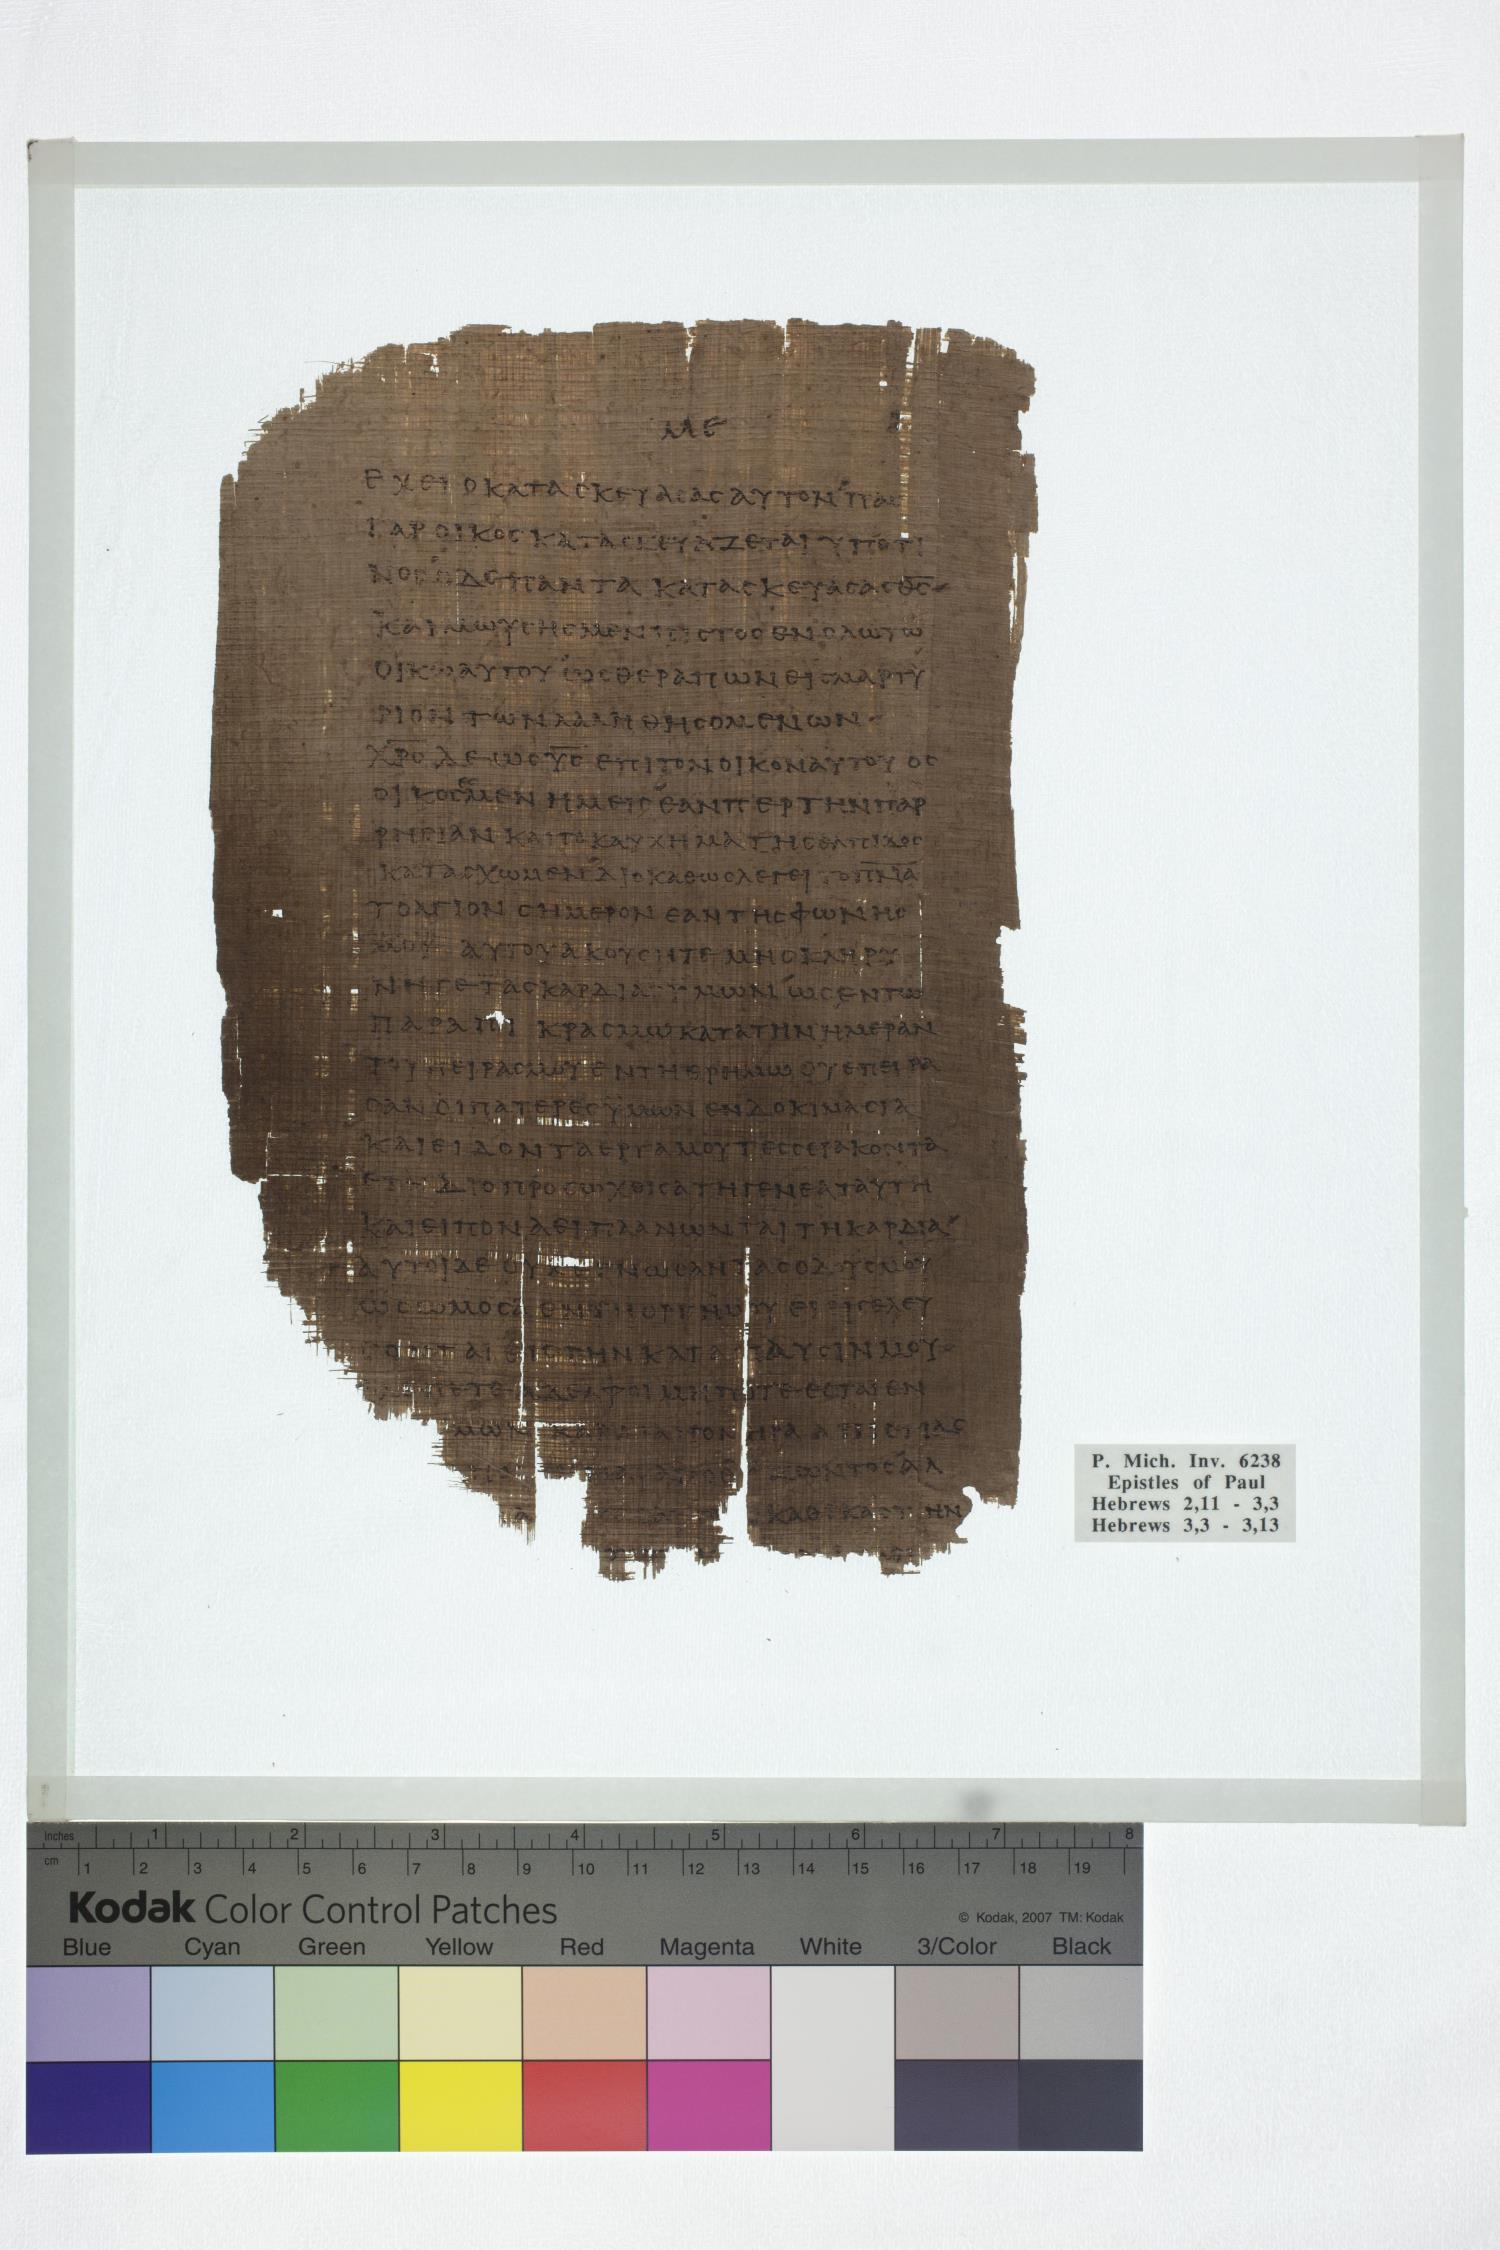 ΜΕ
ΕΧΕΙ Ο ΚΑΤΑΣΚΕΥΑΣΑΣ ΑΥΤΟΝ ΠΑΣ
ΓΑΡ ΟΙΚΟΣ ΚΑΤΑΣΚΕΥΑΖΕΤΑΙ ΥΠΟ ΤΙ
ΝΟΣ Ο ΔΕ ΠΑΝΤΑ ΚΑΤΑΣΚΕΥΑΣΑΣ Θ̅Σ̅
ΚΑΙ ΜΩΥΣΗΣ ΜΕΝ ΠΙΣΤΟΣ ΕΝ ΟΛΩ ΤΩ
ΟΙΚΩ ΑΥΤΟΥ ΩΣ ΘΕΡΑΠΩΝ ΕΙΣ ΜΑΡΤΥ
ΡΙΟΝ ΤΩΝ ΛΑΛΗΘΗΣΟΜΕΝΩΝ
Χ̅Ρ̅Σ̅ ΔΕ ΩΣ Υ̅Σ̅ ΕΠΙ ΤΟΝ ΟΙΚΟΝ ΑΥΤΟΥ ΟΣ
ΟΙΚΟΣ ΕΣΜΕΝ ΗΜΕΙΣ ΕΑΝΠΕΡ ΤΗΝ ΠΑΡ
ΡΗΣΙΑΝ ΚΑΙ ΤΟ ΚΑΥΧΗΜΑ ΤΗΣ ΕΛΠΙΔΟΣ
ΚΑΤΑΣΧΩΜΕΝ ΔΙΟ ΚΑΘΩΣ ΛΕΓΕΙ ΤΟ Π̅Ν̅Α̅
ΤΟ ΑΓΙΟΝ ΣΗΜΕΡΟΝ ΕΑΝ ΤΗΣ ΦΩΝΗΣ
ΜΟΥ ΑΥΤΟΥ ΑΚΟΥΣΗΤΕ ΜΗ ΣΚΛΗΡΥ
ΝΗΤΕ ΤΑΣ ΚΑΡΔΙΑΣ ΥΜΩΝ ΩΣ ΕΝ ΤΩ
ΠΑΡΑΠΙΚΡΑΣΜΩ ΚΑΤΑ ΤΗΝ ΗΜΕΡΑΝ
ΤΟΥ ΠΕΙΡΑΣΜΟΥ ΕΝ ΤΗ ΕΡΗΜΩ ΟΥ ΕΠΕΙΡΑ
ΣΑΝ ΟΙ ΠΑΤΕΡΕΣ ΥΜΩΝ ΕΝ ΔΟΚΙΜΑΣΙΑ
ΚΑΙ ΕΙΔΟΝ ΤΑ ΕΡΓΑ ΜΟΥ ΤΕΣΣΕΡΑΚΟΝΤΑ
ΕΤΗ ΔΙΟ ΠΡΟΣΩΧΘΙΣΑ ΤΗ ΓΕΝΕΑ ΤΑΥΤΗ
ΚΑΙ ΕΙΠΟΝ ΑΕΙ ΠΛΑΝΩΝΤΑΙ ΤΗ ΚΑΡΔΙΑ
ΑΥΤΟΙ ΔΕ ΟΥΚ ΕΓΝΩΣΑΝ ΤΑΣ ΟΔΟΥΣ ΜΟΥ
ΩΣ ΩΜΟΣΑ ΕΝ ΤΗ ΟΡΓΗ ΜΟΥ ΕΙ ΕΙΣΕΛΕΥ
ΣΟΝΤΑΙ ΕΙΣ ΤΗΝ ΚΑΤΑΠΑΥΣΙΝ ΜΟΥ
ΒΛΕΠΕΤΕ ΑΔΕΛΦΟΙ ΜΗΠΟΤΕ ΕΣΤΑΙ ΕΝ
ΥΜΩΝ ΚΑΡΔΙΑ ΠΟΝΗΡΑ ΑΠΙΣΤΙΑΣ
ΖΩΝΤΟΣ ΑΛ
ΚΑΘ ΕΚΑΣΤΗΝ
P. Mich. Inv. 6238
Epistles of Paul
Hebrews 2,11 - 3,3
Hebrews 3,3 - 3,13
inches 1 2 3 4 5 6 7 8
cm 1 2 3 4 5 6 7 8 9 10 11 12 13 14 15 16 17 18 19
Kodak Color Control Patches
© Kodak, 2007 TM: Kodak
Blue Cyan Green Yellow Red Magenta White 3/Color Black